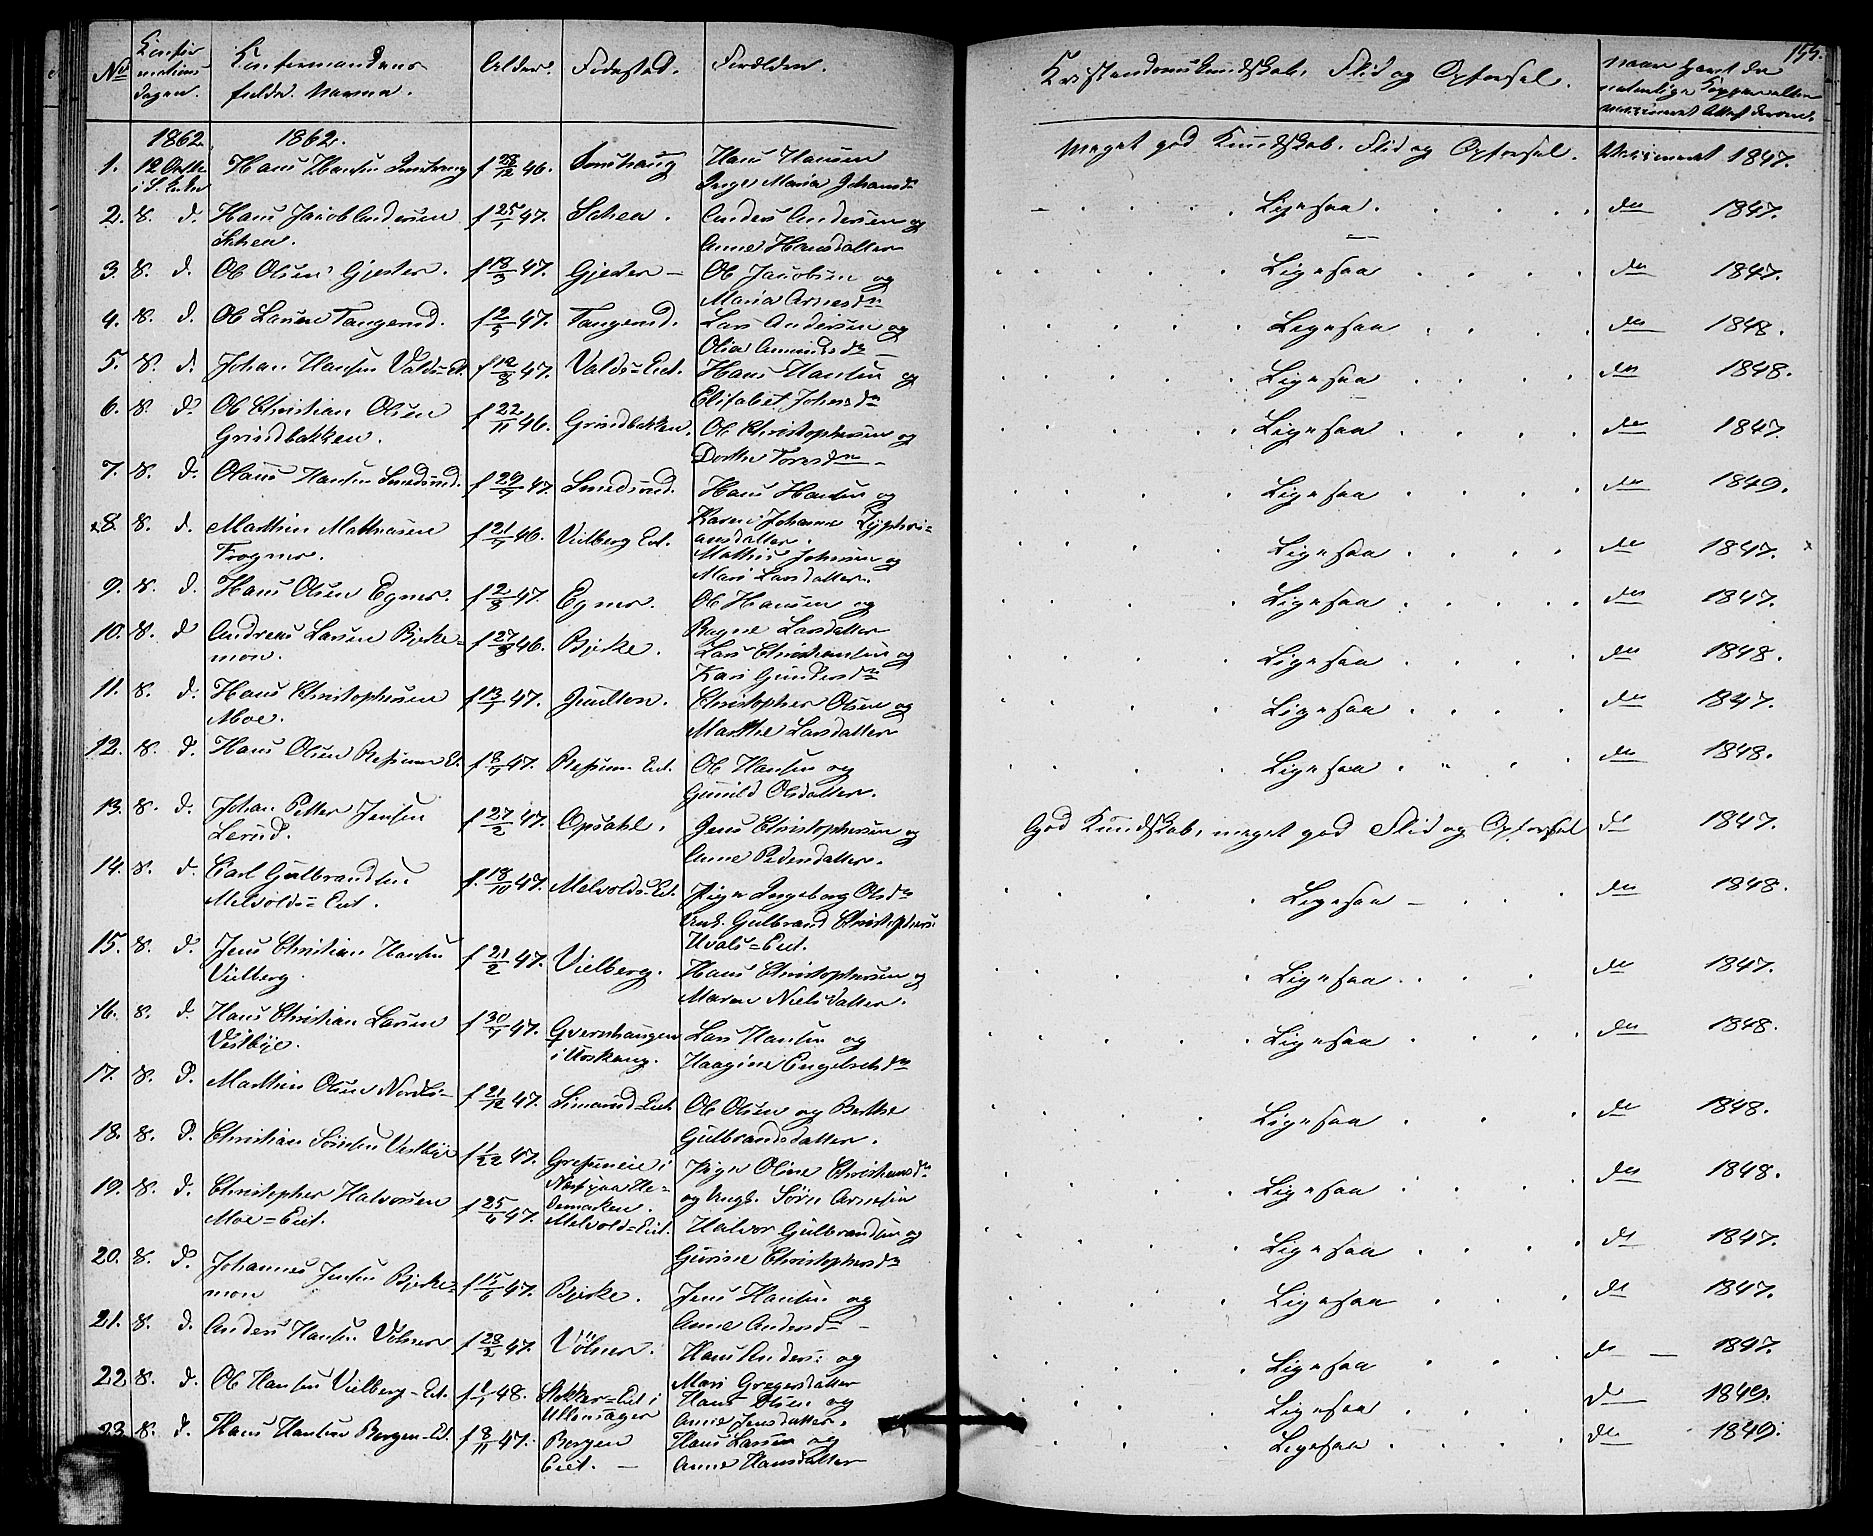 155.
No
Confir-
mations
dagen.
Confirmandens
fulde Navne.
Alder.
Fødested.
Forældre.
Kristendomskundskab, Flid og Opførsel.
naar havt de
naturlige Kopper eller
vaccineret Attest derom.
1862. 1862.
1. 12 Octbr Hans Hansen f 28/12 46. Sonshaug Hans Hansen Meget god Kundskab, Flid og Opførsel. Vaccineret 1847.
Inger Maria Johansdr
2. 8. d. Hans Jacob Andersen f 25/1 47. Schea. Anders Andersen og Ligesaa. do 1847.
Schea. Anne Hansdatter
3. 8. d. Ole Olsen Gjester. f 18/3 47. Gjester Ole Jacobsen og Ligesaa do 1847.
Maria Arnesdr
4. 8. d. Ole Larsen Tangerud. f 2/5 47. Tangerud. Lars Andersen og Ligesaa do 1848.
Olia Amundsdr
5. 8. d. Johan Hansen Valds=Et. f 12/8 47. Valds=Eiet. Hans Hansen og Ligesaa do 1848.
Elisabet Johnsdr
6. 8. d. Ole Christian Olsen f 22/11 46. Grindbakken. Ole Christophersen og Ligesaa do 1847.
Grindbakken. Dorthe Toresdr
7. 8. d. Olaus Hansen Smedsrud. f 29/7 47. Smedsrud. Hans Hansen og Ligesaa do 1849.
Karen Johanne Zyphri=
ansdatter.
8. 8. d. Marthin Mathiasen f 21/7 46. Vielberg Eet. Mathis Johnsen og Ligesaa do 1847.
Frogner. Mari Larsdatter.
9. 8. d. Hans Olsen Egner. f 2/8 47. Egner. Ole Hansen og Ligesaa do 1847.
Ragne Larsdatter
10. 8. d Andreas Larsen Bjerke= f 27/8 46. Bjerke. Lars Christiansen og Ligesaa do 1848.
mon. Kari Gundersdr
11. 8. d. Hans Christophersen f 13/7 47. Christopher Olsen og Ligesaa do 1847.
Moe. Marthe Larsdatter
12. 8. d. Hans Olsen Ressum Et. f 8/7 47. Ressum Eiet. Ole Hansen og Ligesaa do 1848.
Gunild Olsdatter.
13. 8. d. Johan Petter Jensen f 27/2 47. Opsahl. Jens Christophersen og God Kundskab, meget god Flid og Opførsel do 1847.
Lerud. Anne Pedersdatter.
14. 8. d. Carl Gulbrandsen f. 18/10 47. Melvolds=Eiet. Pige Ingeborg Olsdr Ligesaa do 1848.
Melvolds=Eiet. Ungk. Gulbrand Christophers:
Uvals=Eiet.
15. 8. d. Jens Christian Hansen f 21/2 47. Vielberg. Hans Christophersen og Ligesaa do 1847.
Vielberg. Maren Nielsdatter.
16. 8. d. Hans Christian Larsen f 30/7 47. Qvernhaugen Lars Hansen og Ligesaa do 1848.
Vestbye. i Urskoug. Haagine Engebretsdr
17. 8. d. Marthin Olsen Nordli f 21/12 47. Simarud=Eiet Ole Olsen og Berthe Ligesaa do 1848.
Gulbrandsdatter.
18. 8. d. Christian Sørensen Vestbye f 1/22 47. Grefsneie i Pige Oline Christiansdr Ligesaa do 1848.
Næs paa He= og Ungk. Sørn Arnesen
demarken.
19. 8. d. Christopher Halvorsen f 25/6 47. Melvold=Eiet. Halvor Gulbrandsen og Ligesaa do 1847.
Moe=Eiet. Gurine Christophersdr
20. 8. d. Johannes Jensen Bjerke= f 15/6 47. Bjerke. Jens Hansen og Ligesaa do 1847.
mon Anne Andersdr
21. 8. d. Anders Hansen Vølner f 28/2 47. Vølner. Hans Anders: og Ligesaa do 1847.
Mari Gregersdatter
22 8. d. Ole Hansen Vielberg=Eet. f 1/1 48. Stokker=Eiet i Hans Olsen og Ligesaa do 1849.
Ullensager Anne Jensdatter.
23 8. d. Hans Hansen Borgen=Et. f 8/11 47. Borgen Hans Larsen og Ligesaa do 1849.
Eiet. Anne Hansdatter